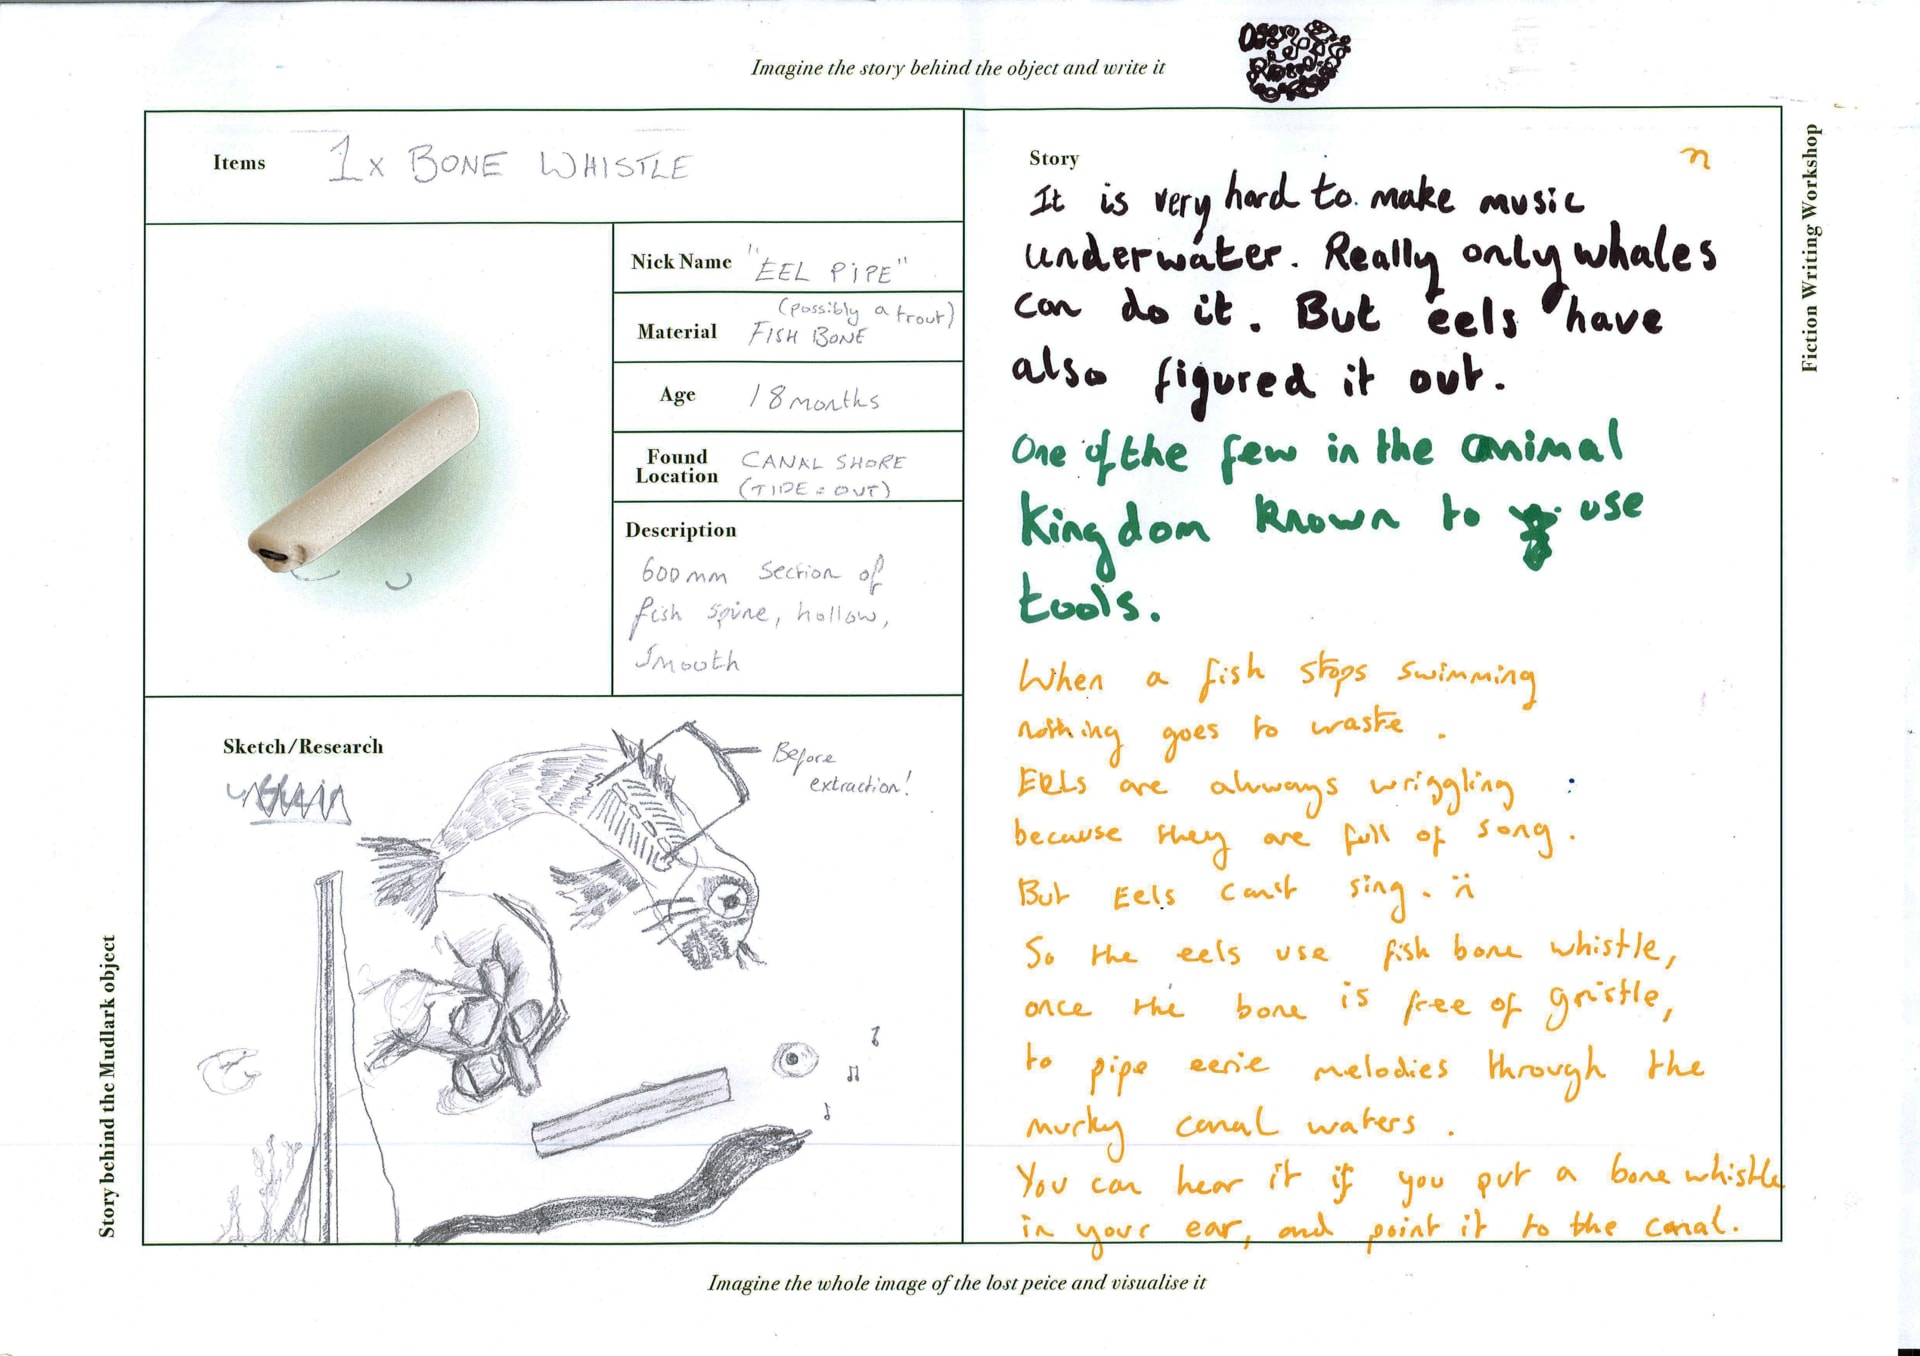 Imagine the story behind the object and write it
Items 1x BONE WHISTLE
Nick Name "EEL PIPE"
Material (possibly a trout)
FISH BONE
Age 18 months
Found Location CANAL SHORE
(TIDE = OUT)
Description
600mm section of
fish spine, hollow,
smooth
Sketch/Research
Before
extraction!
Story
n
It is very hard to make music
underwater. Really only whales
can do it. But eels have
also figured it out.
One of the few in the animal
Kingdom known to use
tools.
When a fish stops swimming
nothing goes to waste.
EELs are always wriggling
because they are full of song.
But Eels can't sing.
So the eels use fish bone whistle,
once the bone is free of gristle,
to pipe eerie melodies through the
murky canal waters.
You can hear it if you put a bone whistle
in your ear, and point it to the canal.
Fiction Writing Workshop
Story behind the Mudlark object
Imagine the whole image of the lost peice and visualise it